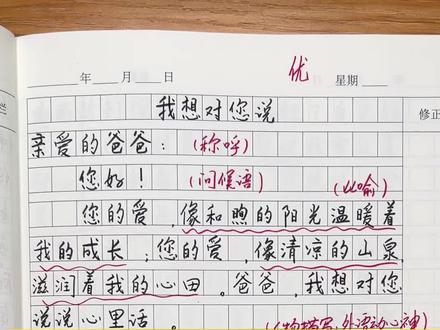 优
年 月 日 星期
我想对您说
修正
亲爱的爸爸：(称呼)
您好！ (问候语) (比喻)
您的爱,像和煦的阳光温暖着
我的成长；您的爱,像清凉的山泉,
滋润着我的心田。爸爸,我想对您
说说心里话。